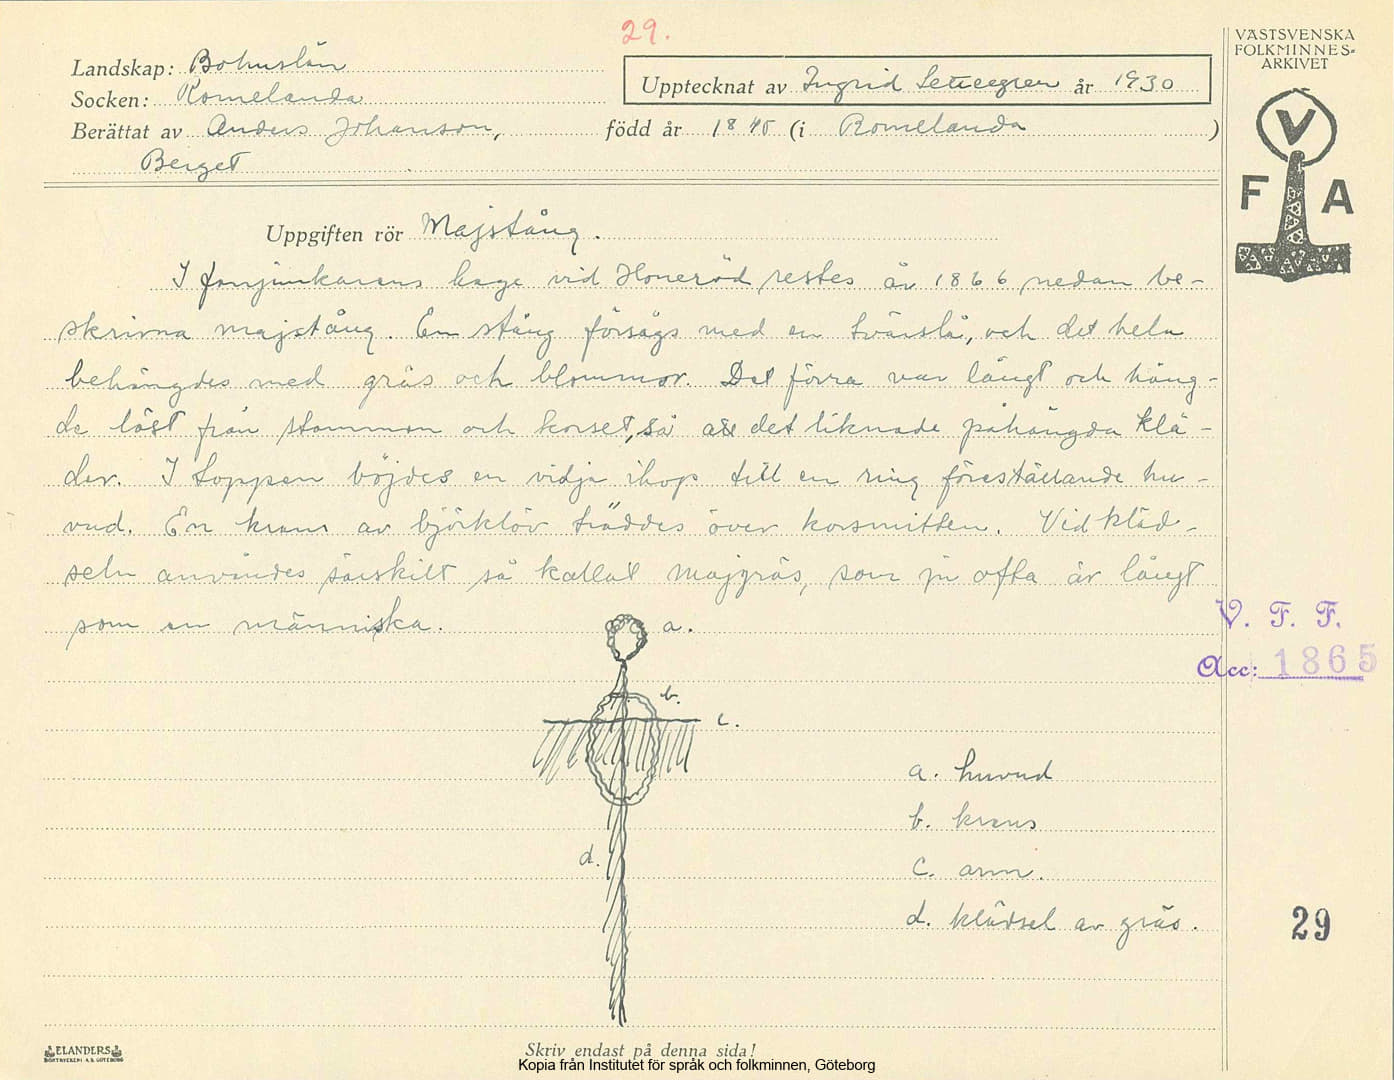 29.
VÄSTSVENSKA
FOLKMINNES-
ARKIVET
V
F A
Landskap: Bohuslän
Upptecknat av Ingrid år 1930
Socken: Romelanda
Berättat av Anders Johanson, född år 1845 (i Romelanda)
Berget
Uppgiften rör Majstång.
I fanjunkarens hage vid Honeröd restes år 1866 nedan be-
skrivna majstång. En stång försågs med en tvärslå, och det hela
behängdes med gräs och blommor. Det förra var långt och häng-
de löst från stammen och korset, så att det liknade påhängda klä-
der. I toppen böjdes en vidja ihop till en ring föreställande hu-
vud. En krans av björklöv träddes över korsmitten. Vid kläd-
seln användes särskilt så kallat majgräs, som ju ofta är långt
som en människa.
a.
b.
c.
d.
a. huvud
b. krans
c. arm.
d. klädsel av gräs.
V. F. F.
Acc: 1865
29
ELANDERS
BOKTRYCKERI A.B. GÖTEBORG
Skriv endast på denna sida!
Kopia från Institutet för språk och folkminnen, Göteborg